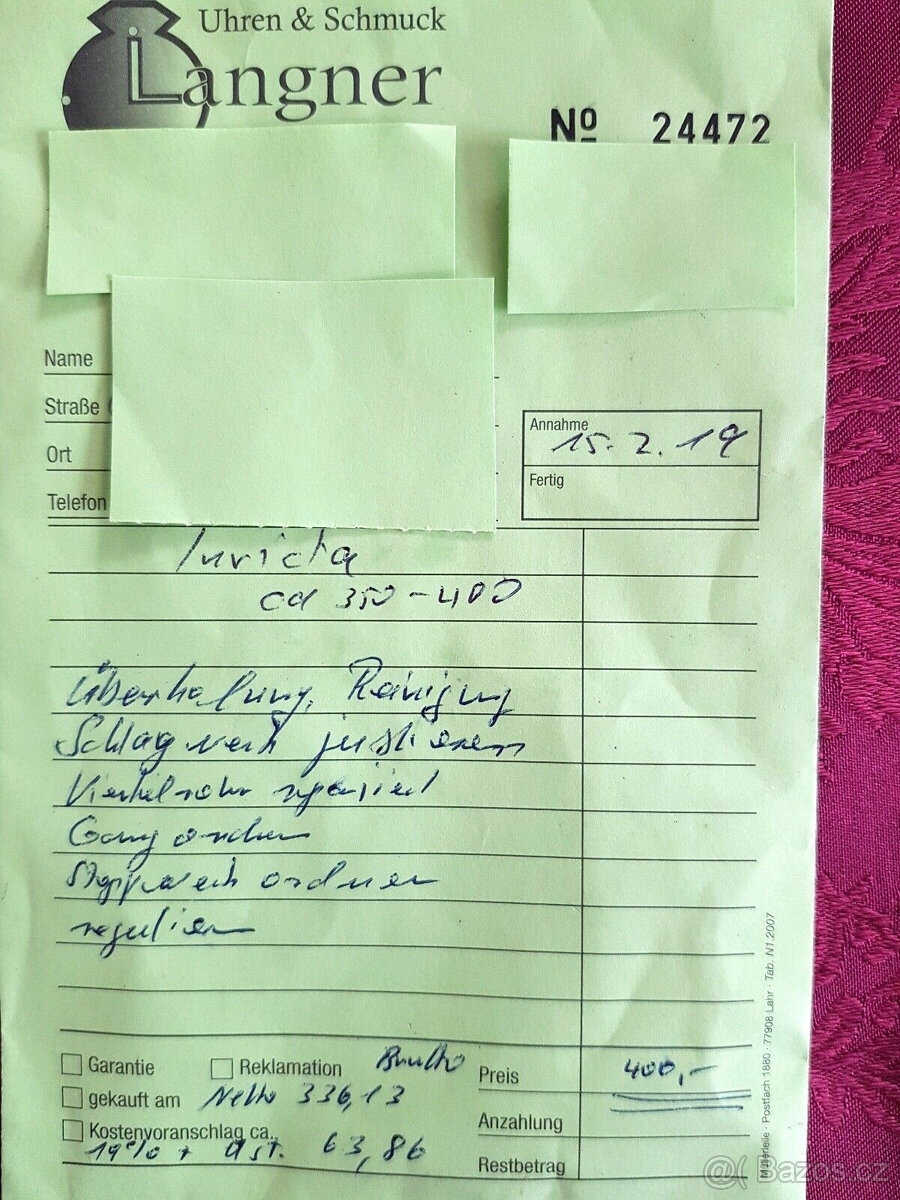 Uhren & Schmuck
Langner
Nº 24472
Name
Straße
Ort
Telefon
Annahme 15.2.19
Fertig
Invicta
ca 350-400
Überholung, Reinigung
Schlagwerk justieren
Viertelrohr repariert
Gang ordnen
Stoppwerk ordnen
regulieren
Garantie
Reklamation
Brutto
Preis 400,-
gekauft am
Netto 336,13
Anzahlung
Kostenvoranschlag ca.
19% + Ust. 63,86
Restbetrag
Postfach 1880 · 77908 Lahr · Tab. N1.2007
Bazos.cz